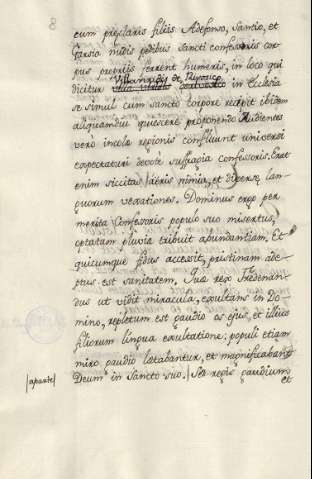 8
cum præclaris filiis Adefonso, Sanctio, et
Garsia nudis pedibus Sancti confessoris cor-
pus propriis ferent humeris, in loco qui
Villanaudis de
dicitur in Ecclesia
se simul cum sancto corpore recepit ibidem
aliquandiu quiescere proponendo. Audientes
vero incolæ regionis confluunt universi
expectaturi devote suffragia confessoris. Erat
enim siccitas aëris nimia, et diversæ lan-
guorum vexationes. Dominus ergo per
merita Confessoris populo suo misertus,
optatam pluvia tribuit abundantiam. Et
quicumque fidus accessit, pristinam ade-
ptus est sanitatem. Quæ rex Fredenan-
dus ut vidit miracula, exultans in Do-
mino, repletum est gaudio os ejus, et illius
filiorum lingua exultatione; populi etiam
miro gaudio lætabantur, et magnificabant
|aparte| Deum in Sancto suo.| Sed regis gaudium
et